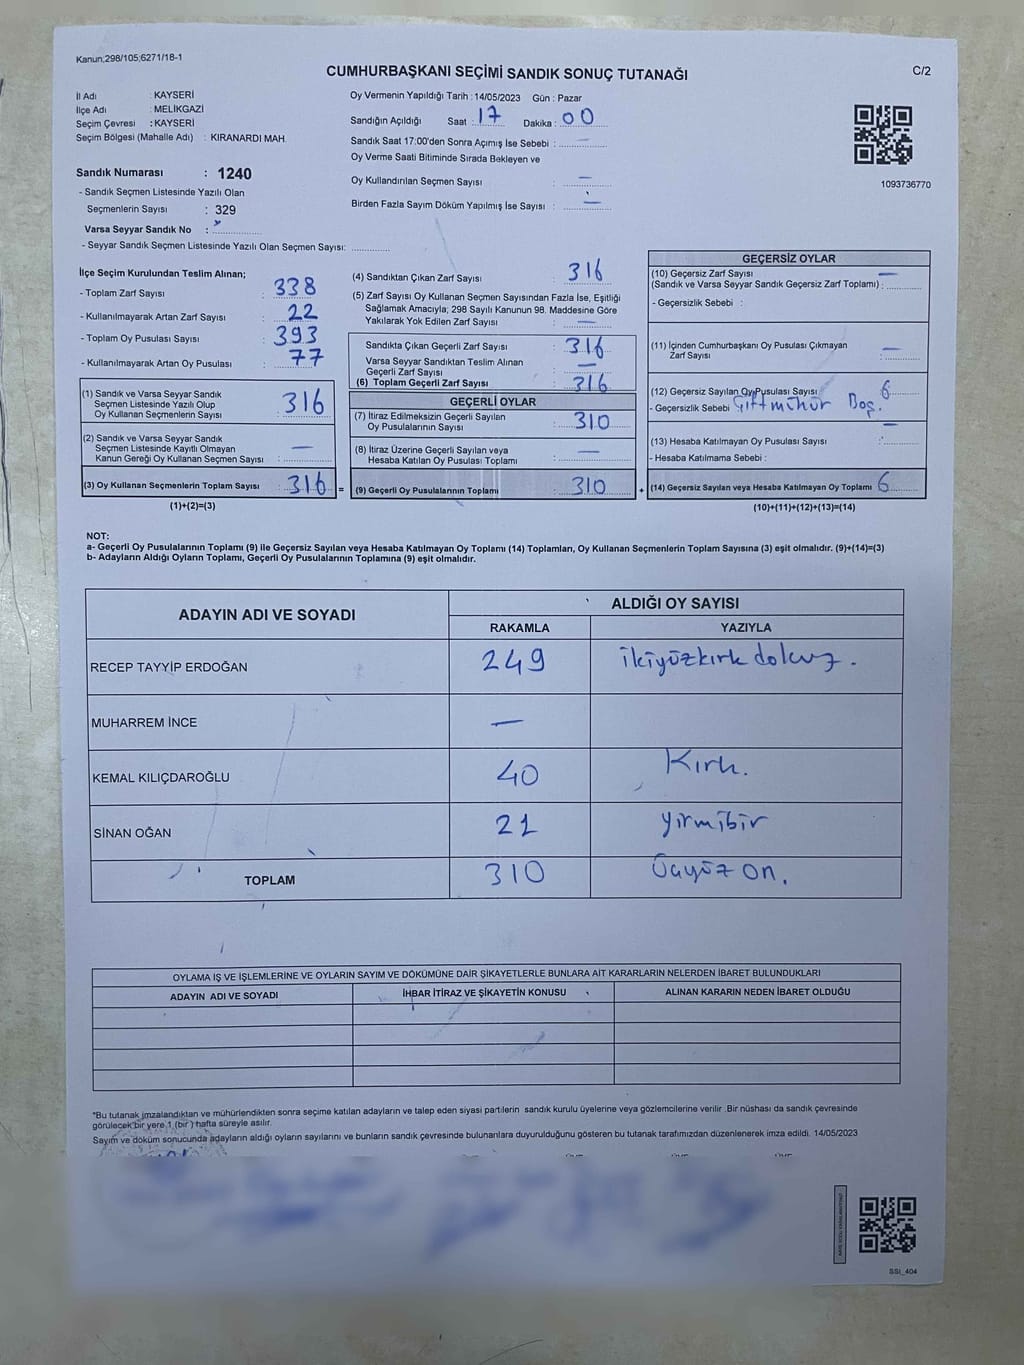 Kanun;298/105;6271/18-1
CUMHURBAŞKANI SEÇİMİ SANDIK SONUÇ TUTANAĞI
C/2
İl Adı : KAYSERİ
İlçe Adı : MELİKGAZİ
Seçim Çevresi : KAYSERİ
Seçim Bölgesi (Mahalle Adı) : KIRANARDI MAH.
Sandık Numarası : 1240
- Sandık Seçmen Listesinde Yazılı Olan
Seçmenlerin Sayısı : 329
Varsa Seyyar Sandık No :
- Seyyar Sandık Seçmen Listesinde Yazılı Olan Seçmen Sayısı:
Oy Vermenin Yapıldığı Tarih : 14/05/2023 Gün : Pazar
Sandığın Açıldığı Saat : 17 Dakika : 00
Sandık Saat 17:00'den Sonra Açımış İse Sebebi : —
Oy Verme Saati Bitiminde Sırada Bekleyen ve
Oy Kullandırılan Seçmen Sayısı : —
Birden Fazla Sayım Döküm Yapılmış İse Sayısı : —
1093736770
İlçe Seçim Kurulundan Teslim Alınan;
- Toplam Zarf Sayısı : 338
- Kullanılmayarak Artan Zarf Sayısı : 22
- Toplam Oy Pusulası Sayısı : 393
- Kullanılmayarak Artan Oy Pusulası : 77
(1) Sandık ve Varsa Seyyar Sandık
Seçmen Listesinde Yazılı Olup
Oy Kullanan Seçmenlerin Sayısı : 316
(2) Sandık ve Varsa Seyyar Sandık
Seçmen Listesinde Kayıtlı Olmayan
Kanun Gereği Oy Kullanan Seçmen Sayısı : —
(3) Oy Kullanan Seçmenlerin Toplam Sayısı : 316 =
(1)+(2)=(3)
(4) Sandıktan Çıkan Zarf Sayısı : 316
(5) Zarf Sayısı Oy Kullanan Seçmen Sayısından Fazla İse, Eşitliği
Sağlamak Amacıyla; 298 Sayılı Kanunun 98. Maddesine Göre
Yakılarak Yok Edilen Zarf Sayısı : —
Sandıkta Çıkan Geçerli Zarf Sayısı : 316
Varsa Seyyar Sandıktan Teslim Alınan
Geçerli Zarf Sayısı : —
(6) Toplam Geçerli Zarf Sayısı : 316
GEÇERLİ OYLAR
(7) İtiraz Edilmeksizin Geçerli Sayılan
Oy Pusulalarının Sayısı : 310
(8) İtiraz Üzerine Geçerli Sayılan veya
Hesaba Katılan Oy Pusulası Toplamı : —
(9) Geçerli Oy Pusulalarının Toplamı : 310 +
GEÇERSİZ OYLAR
(10) Geçersiz Zarf Sayısı —
(Sandık ve Varsa Seyyar Sandık Geçersiz Zarf Toplamı) :
- Geçersizlik Sebebi :
(11) İçinden Cumhurbaşkanı Oy Pusulası Çıkmayan
Zarf Sayısı : —
(12) Geçersiz Sayılan Oy Pusulası Sayısı : 6
- Geçersizlik Sebebi : Çift mühür Boş.
(13) Hesaba Katılmayan Oy Pusulası Sayısı : —
- Hesaba Katılmama Sebebi :
(14) Geçersiz Sayılan veya Hesaba Katılmayan Oy Toplamı 6
(10)+(11)+(12)+(13)=(14)
NOT:
a- Geçerli Oy Pusulalarının Toplamı (9) ile Geçersiz Sayılan veya Hesaba Katılmayan Oy Toplamı (14) Toplamları, Oy Kullanan Seçmenlerin Toplam Sayısına (3) eşit olmalıdır. (9)+(14)=(3)
b- Adayların Aldığı Oyların Toplamı, Geçerli Oy Pusulalarının Toplamına (9) eşit olmalıdır.
ADAYIN ADI VE SOYADI ALDIĞI OY SAYISI
RAKAMLA YAZIYLA
RECEP TAYYİP ERDOĞAN 249 ikiyüzkırk dokuz.
MUHARREM İNCE —
KEMAL KILIÇDAROĞLU 40 Kırk.
SİNAN OĞAN 21 yirmibir
TOPLAM 310 Üçyüz on.
OYLAMA İŞ VE İŞLEMLERİNE VE OYLARIN SAYIM VE DÖKÜMÜNE DAİR ŞİKAYETLERLE BUNLARA AİT KARARLARIN NELERDEN İBARET BULUNDUKLARI
ADAYIN ADI VE SOYADI İHBAR İTİRAZ VE ŞİKAYETİN KONUSU ALINAN KARARIN NEDEN İBARET OLDUĞU
*Bu tutanak imzalandıktan ve mühürlendikten sonra seçime katılan adayların ve talep eden siyasi partilerin sandık kurulu üyelerine veya gözlemcilerine verilir .Bir nüshası da sandık çevresinde
görülecek bir yere 1 (bir ) hafta süreyle asılır.
Sayım ve döküm sonucunda adayların aldığı oyların sayılarını ve bunların sandık çevresinde bulunanlara duyurulduğunu gösteren bu tutanak tarafımızdan düzenlenerek imza edildi. 14/05/2023
SSI_404